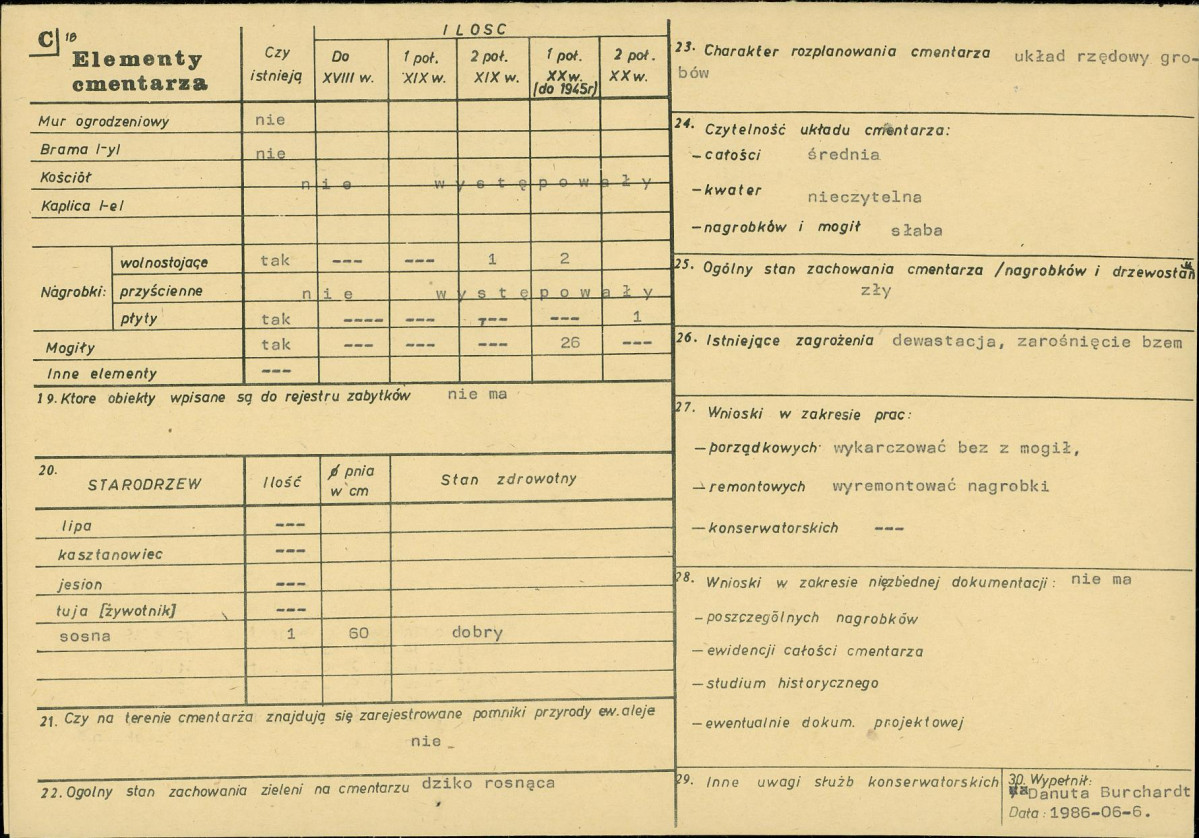 C 18
Elementy cmentarza
Czy istnieją
ILOSC
Do XVIII w.
1 poł. XIX w.
2 poł. XIX w.
1 poł. XX w. (do 1945r)
2 poł. XX w.
Mur ogrodzeniowy nie
Brama /-y/ nie
Kościół nie występowały
Kaplica /-e/
Nagrobki: wolnostojące tak --- --- 1 2
przyścienne nie występowały
płyty tak ---- --- --- --- 1
Mogiły tak --- --- --- 26 ---
Inne elementy ---
19. Ktore obiekty wpisane są do rejestru zabytków nie ma
20.
STARODRZEW Ilość ø pnia w cm Stan zdrowotny
lipa ---
kasztanowiec ---
jesion ---
tuja [żywotnik] ---
sosna 1 60 dobry
21. Czy na terenie cmentarza znajdują się zarejestrowane pomniki przyrody ew. aleje
nie
22. Ogolny stan zachowania zieleni na cmentarzu dziko rosnąca
23. Charakter rozplanowania cmentarza układ rzędowy gro-
bów
24. Czytelność układu cmentarza:
– całości średnia
– kwater nieczytelna
– nagrobków i mogił słaba
25. Ogólny stan zachowania cmentarza /nagrobków i drzewostan
zły
26. Istniejące zagrożenia dewastacja, zarośnięcie bzem
27. Wnioski w zakresie prac:
– porządkowych wykarczować bez z mogił,
– remontowych wyremontować nagrobki
– konserwatorskich ---
28. Wnioski w zakresie niezbednej dokumentacji: nie ma
– poszczególnych nagrobków
– ewidencji całości cmentarza
– studium historycznego
– ewentualnie dokum. projektowej
29. Inne uwagi służb konserwatorskich
30. Wypełnił:
Danuta Burchardt
Data: 1986-06-6.